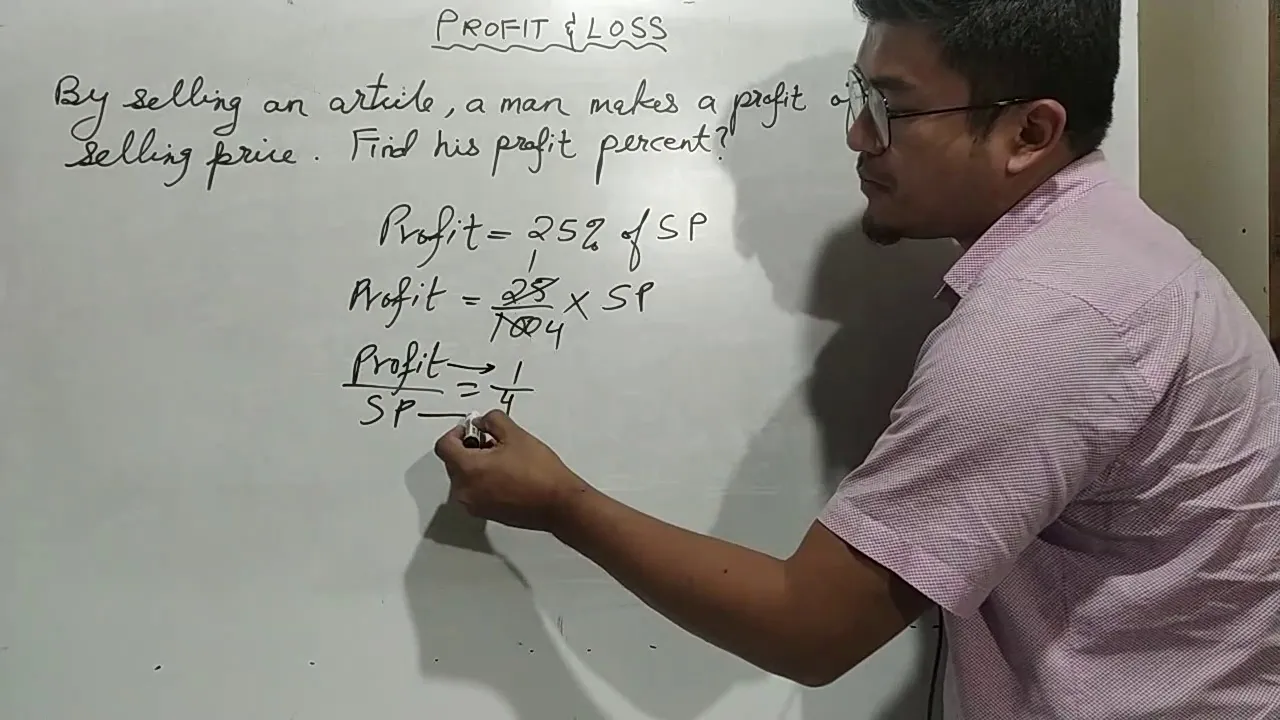 PROFIT & LOSS
By selling an article, a man makes a profit
selling price. Find his profit percent?
Profit = 25% of SP
1
Profit = 25/100 4 × SP
Profit → 1
SP = 4